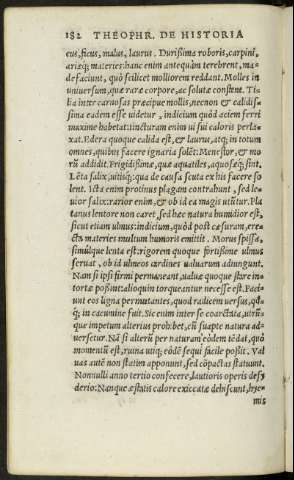 182 THEOPHR. DE HISTORIA
eus, ficus, malus, laurus. Durissima roboris, carpini,
ariæq; materies: hanc enim antequàm terebrent, ma-
defaciunt, quò scilicet molliorem reddant. Molles in
universum, quæ raræ corporæ, ac solutæ constent. Ti-
lia inter carnosas præcipue mollis, necnon & calidis-
sima eadem esse uidetur, indicium quòd aciem ferri
maxime habetat: tincturam enim ui sui caloris perla-
xat. Edera quoque calida est, & laurus, atq; in totum
omnes, quibus facere ignaria solet: Menestor, & mo-
rũ addidit. Frigidissimæ, quæ aquatiles, aquosæq; sint.
Lẽta salix, uitisq; qua de causa scuta ex his facere so
lent. Icta enim protinus plagam contrahunt, sed le-
uior salix: rarior enim, & ob id ea magis utũtur. Pla
tanus lentore non caret, sed hæc natura humidior est,
sicut etiam ulmus: indicium, quòd post cæsuram, ere-
cta materies multum humoris emittit. Morus spissa,
simulque lenta est: rigorem quoque fortissime ulmus
seruat, ob id ulmeos cardines ualuarum adiungunt.
Nam si ipsi firmi permaneant, ualuæ quoque stare in-
tortæ possint: alioquin torqueantur necesse est. Faci-
unt eos ligna permutantes, quod radicem uersus, qđ-
q; in cacumine fuit. Sic enim inter se coarctata, utrũ-
que impetum alterius prohibet, cũ suapte natura ad-
uersetur. Nã si alterũ per naturam eòdem tẽdat, quò
momentũ est, ruina utiq; eòdẽ sequi facile possit. Val
uas autẽ non statim apponunt, sed cõpactas statuunt.
Nonnulli anno tertio confecere, lautioris operis desy
derio: Nanque æstatis calore exiccatæ dehiscunt, hye-
mis